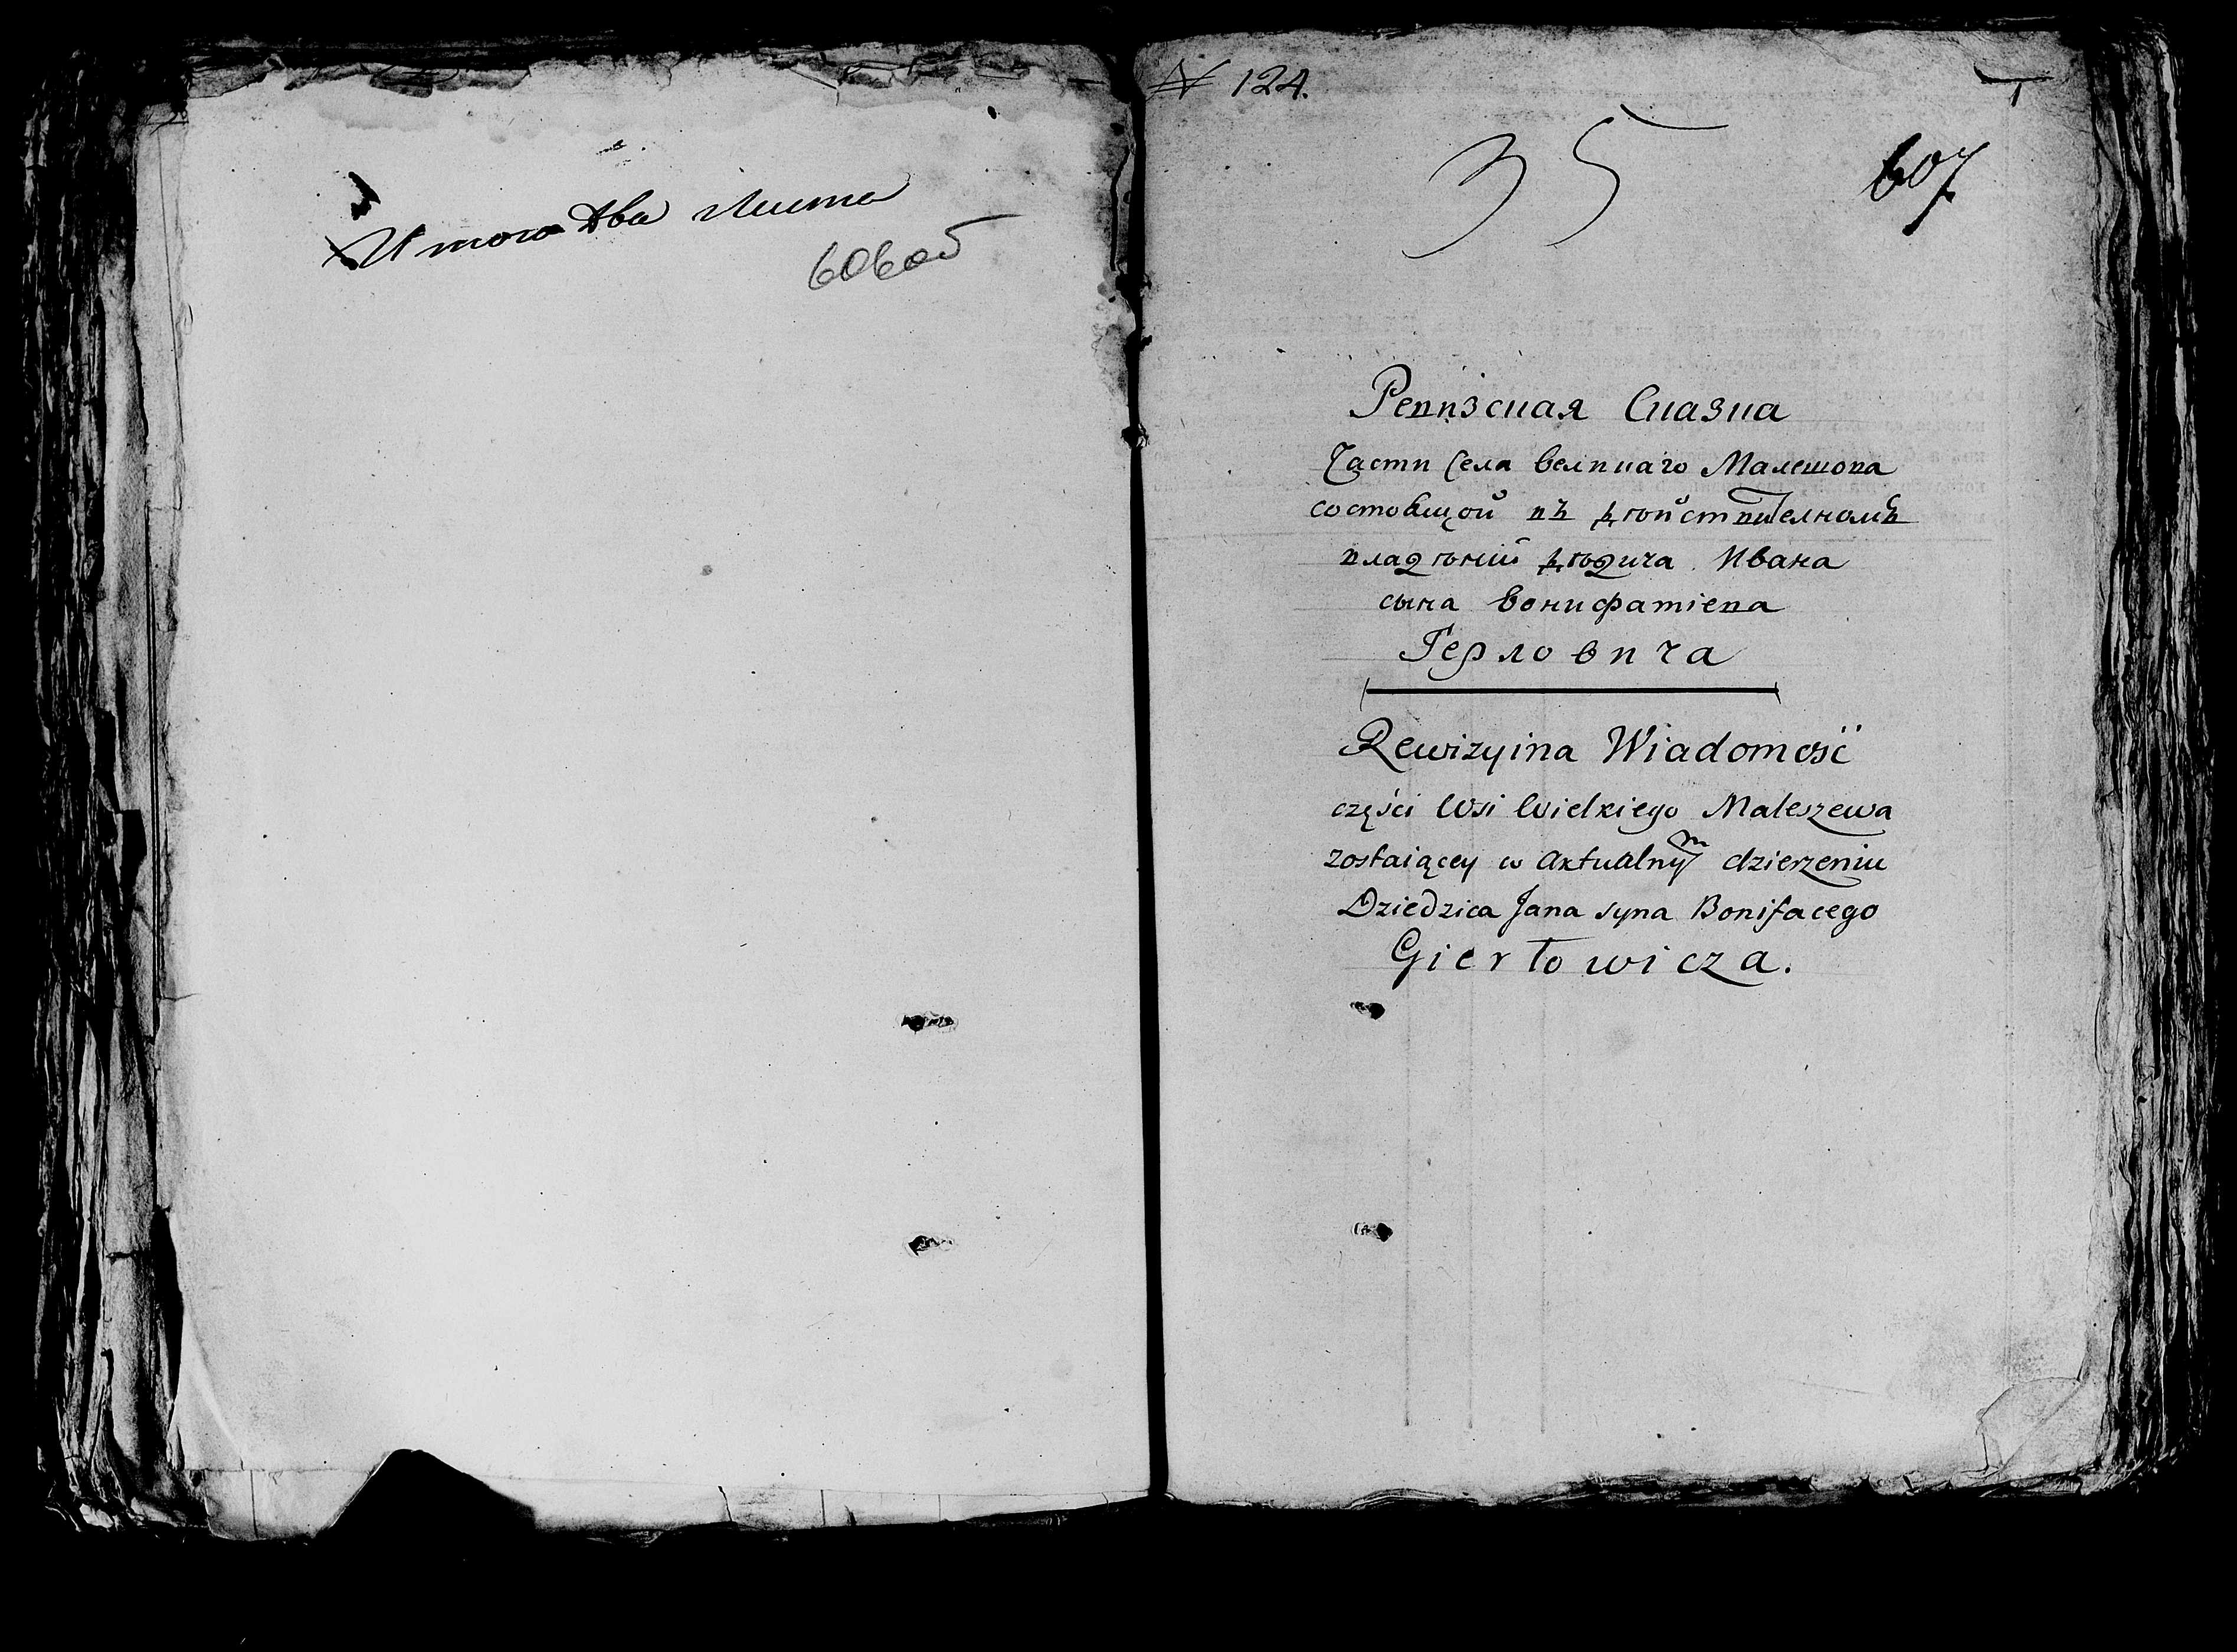 Итого два листа
606об
N 124.
1
35
607
Ревизская Сказка
Части Села Великаго Малешова
состоящой въ дѣйствителномъ
владѣнии дѣдича Ивана
сына Вонифатіева
Герловича
Rewizyina Wiadomość
części Wsi Wielkiego Maleszewa
zostaiącey w aktualnym dzierzeniu
Dziedzica Jana syna Bonifacego
Giertowicza.